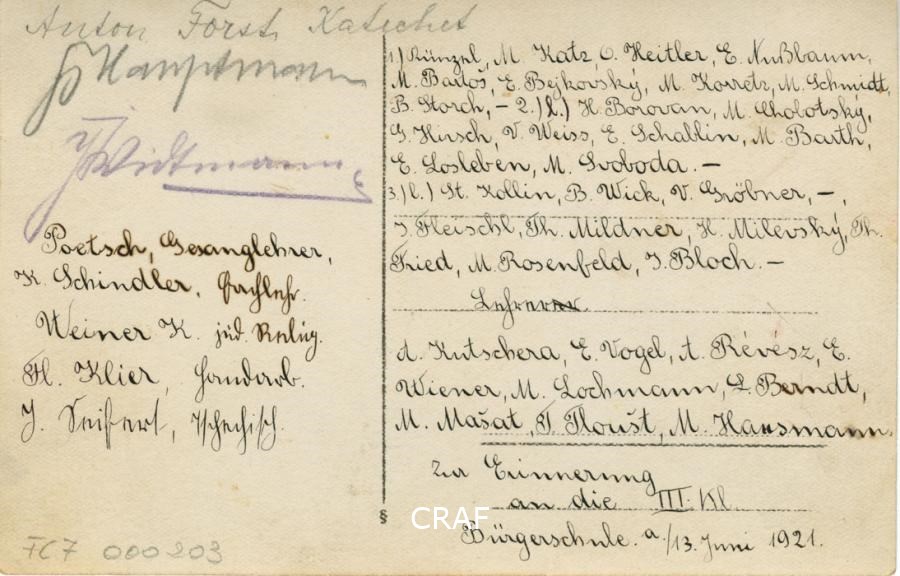 Anton Först Katechet
Hauptmann
Widtmann
Poetsch, Gesanglehrer,
K. Schindler, Fachlehr.
Weiner K. jüd. Relig.
Fl. Klier, Handarb.
J. Seifert, Tschechisch.
FC7 000203
1.) Künzel, M. Katz, O. Heitler, E. Nußbaum,
M. Bartoš, E. Bejkovský, M. Korretz, M. Schmidt,
B. Storch, – 2.) l.) H. Borovan, M. Cholotský,
G. Hirsch, V. Weiss, E. Schablin, M. Barth,
E. Losleben, M. Svoboda. –
3.) l.) St. Kollin, B. Wick, V. Gröbner, –,
J. Fleischl, Th. Mildner, H. Milevský, Th.
Fried, M. Rosenfeld, J. Bloch. –
Lehrer
A. Kutschera, E. Vogel, A. Révész, E.
Wiener, M. Lochmann, L. Berndt,
M. Mašat, T. Ploušt, M. Hausmann.
Zur Erinnerung
an die III. Kl
§ CRAF
Bürgerschule. a/13. Juni 1921.